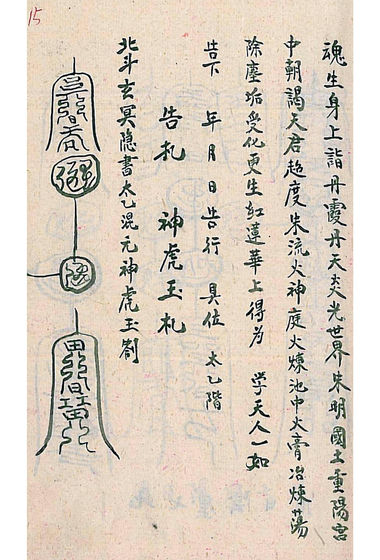 15
魂生身上詣丹霞丹天炎光世界朱明國土重陽宮
中朝謁天君超度朱流火神庭火煉池中火膏冶煉蕩
除塵垢受化更生紅蓮華上得為 學天人一如
告下 年月日告行 具位 太乙階
告札 神虎玉札
北斗玄冥隐書太乙混元神虎玉劄